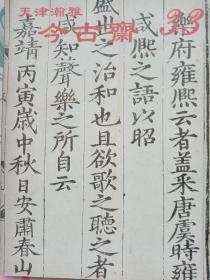 天津瀚雅
今古齋
33
樂府雍熈云者盖采唐虞時雍
咸熈之語以昭
盛世之治和也且欲歌之聽之者
知聲樂之所自云
嘉靖丙寅歲中秋日安肅春山